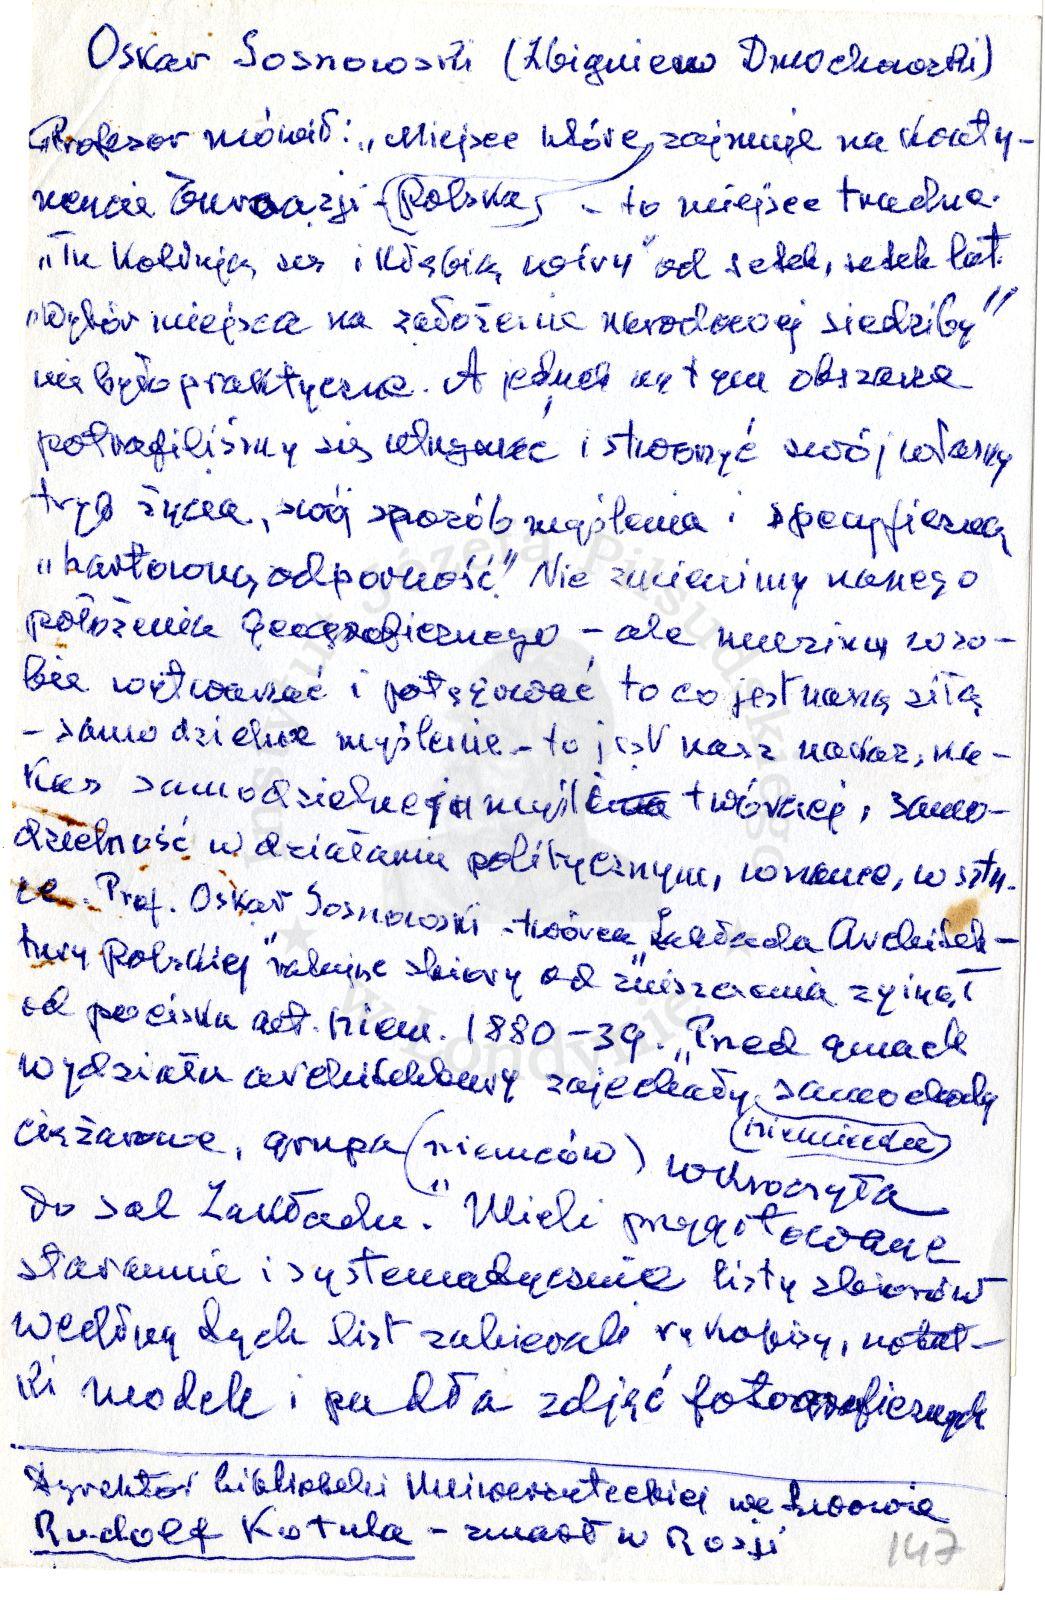 Oskar Sosnowski (Zbigniew Dmochowski)
Profesor mówił: „Miejsce które zajmuje na konty-
nencie Euroazji (Polska) - to miejsce trudne.
„Tu kotłują się i kłębią wiry" od setek, setek lat.
„Wybór miejsca na założenie narodowej siedziby"
nie było praktyczne. A jednak na tym obszarze
potrafiliśmy się utrzymać i stworzyć swój własny
tryb życia, swój sposób myślenia i specyficzną
„hartowną odporność" Nie zmienimy naszego
położenia geograficznego - ale musimy w so-
bie wytwarzać i potęgować to co jest naszą siłą
- samodzielne myślenie - to jest nasz nakaz, na-
kaz samodzielnej myśli twórczej, samo-
dzielność w działaniu politycznym, w nauce, w sztu-
ce. Prof. Oskar Sosnowski twórca „Zakładu Architek-
tury Polskiej" ratując zbiory od zniszczenia zginął
od pocisku art. niem. 1880-39. „Przed gmach
wydziału architektury zajechały samochody
(niemieckie)
ciężarowe, grupa (niemców) wkroczyła
do sal Zakładu." Mieli przygotowane
starannie i systematycznie listy zbiorów
według tych list zabierali rękopisy, notat-
ki modele i pudła zdjęć fotograficznych
Dyrektor biblioteki Uniwersyteckiej we Lwowie
Rudolf Kotula - zmarł w Rosji
147
Instytut Józefa Piłsudskiego
w Londynie